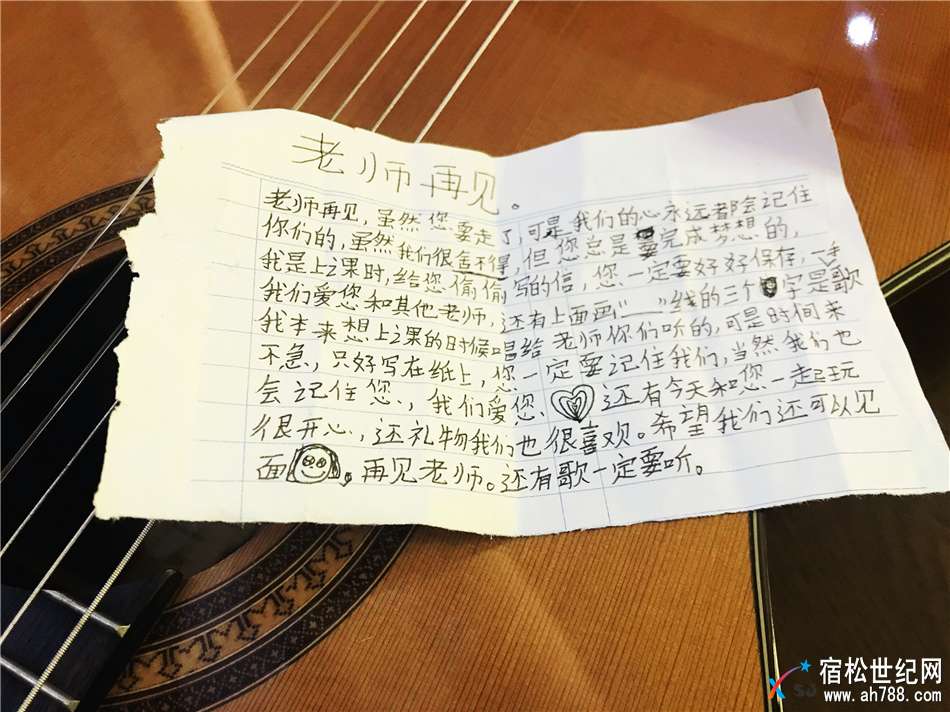 老师再见。
老师再见,虽然您要走了,可是我们的心永远都会记住
你们的,虽然我们很舍不得,但您总是要完成梦想的,
我是上课时,给您偷偷写的信,您一定要好好保存,
我们爱您和其他老师,还有上面画“__”线的三个字是歌
我本来想上课的时候唱给老师你们听的,可是时间来
不急,只好写在纸上,您一定要记住我们,当然我们也
会记住您,我们爱您、还有今天和您一起玩
很开心,还礼物我们也很喜欢。希望我们还可以见
面,再见老师。还有歌一定要听。
宿松世纪网
www.ah788.com